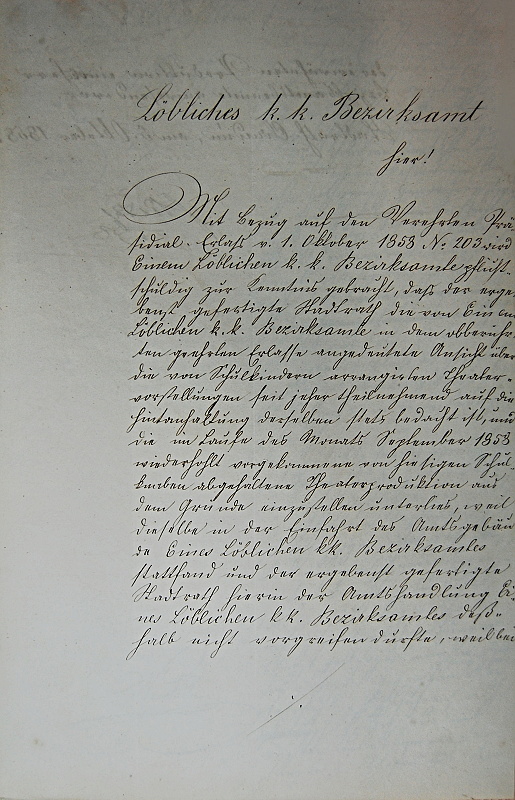 Löbliches k. k. Bezirksamt
hier!
Mit Bezug auf den Verehrten Prä-
sidial-Erlaß v. 1. Oktober 1858 No 203 wird
Einem Löblichen k. k. Bezirksamte pflicht-
schuldig zur Kenntnis gebracht, daß der erge-
benst gefertigte Stadtrath die von Einem
Löblichen k. k. Bezirksamte in dem obberühr-
ten geehrten Erlasse angedeutete Ansicht über
die von Schulkindern arrangirten Theater-
vorstellungen seit jeher theilnehmend auf die
Hintanhaltung derselben stets bedacht ist, und
die im Laufe des Monats September 1858
wiederhohlt vorgekommene von hiesigen Schul-
knaben abgehaltene Theaterproduktion aus
dem Grunde einzustellen unterlies, weil
dieselbe in der Einfahrt des Amtsgebäu-
de Eines Löblichen kk. Bezirksamtes
stattfand und der ergebenst gefertigte
Stadtrath hierin der Amtshandlung Ei-
nes Löblichen kk. Bezirksamtes deß-
halb nicht vorgreifen durfte, weil bei